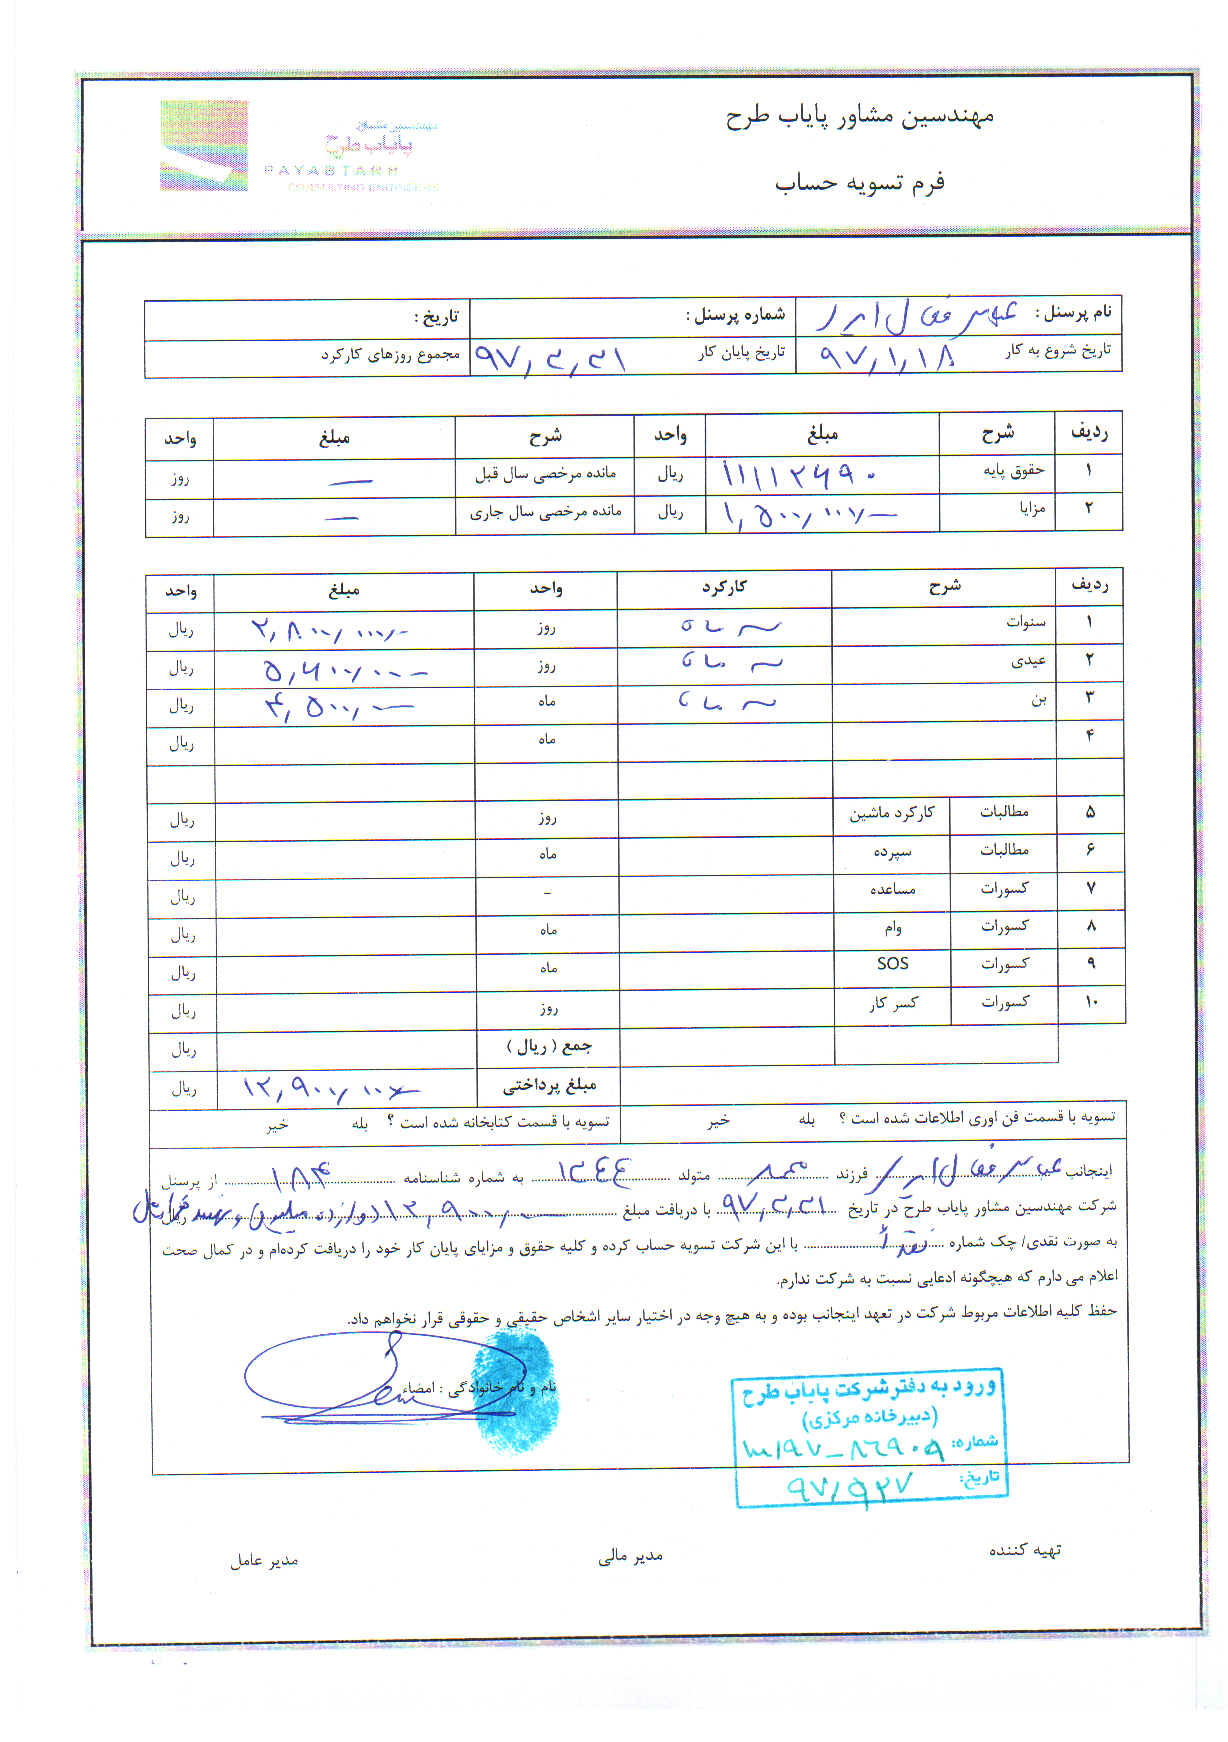 مهندسین مشاور پایاب طرح
فرم تسویه حساب
مهندسین مشاور
پایاب طرح
PAYABTARH
CONSULTING ENGINEERS
نام پرسنل : عباس شماره پرسنل : تاریخ :
تاریخ شروع به کار ۹۷,۱,۱۸ تاریخ پایان کار ۹۷,۲,۳۱ مجموع روزهای کارکرد
ردیف شرح مبلغ واحد شرح مبلغ واحد
۱ حقوق پایه ۱۱۱۱۲۶۹۰ ریال مانده مرخصی سال قبل — روز
۲ مزایا ۱,۵۰۰,۰۰۰,- ریال مانده مرخصی سال جاری — روز
ردیف شرح کارکرد واحد مبلغ واحد
۱ سنوات روز ۲,۸۰۰,۰۰۰,- ریال
۲ عیدی روز ۵,۶۰۰,۰۰۰- ریال
۳ بن ماه ۴,۵۰۰,۰۰۰- ریال
۴ ماه ریال
۵ مطالبات کارکرد ماشین روز ریال
۶ مطالبات سپرده ماه ریال
۷ کسورات مساعده - ریال
۸ کسورات وام ماه ریال
۹ کسورات SOS ماه ریال
۱۰ کسورات کسر کار روز ریال
جمع ( ریال ) ریال
مبلغ پرداختی ۱۲,۹۰۰,۰۰۰- ریال
تسویه با قسمت فن اوری اطلاعات شده است ؟ بله خیر تسویه با قسمت کتابخانه شده است ؟ بله خیر
اینجانب عباس فرزند محمد متولد ۱۳۴۴ به شماره شناسنامه ۱۸۴ از پرسنل
شرکت مهندسین مشاور پایاب طرح در تاریخ ۹۷,۲,۳۱ با دریافت مبلغ ۱۲,۹۰۰,۰۰۰- (دوازده میلیون و نهصد هزار ریال) ریال
به صورت نقدی/ چک شماره نقداً با این شرکت تسویه حساب کرده و کلیه حقوق و مزایای پایان کار خود را دریافت کرده‌ام و در کمال صحت
اعلام می دارم که هیچگونه ادعایی نسبت به شرکت ندارم.
حفظ کلیه اطلاعات مربوط شرکت در تعهد اینجانب بوده و به هیچ وجه در اختیار سایر اشخاص حقیقی و حقوقی قرار نخواهم داد.
نام و نام خانوادگی : امضاء
ورود به دفتر شرکت پایاب طرح
(دبیرخانه مرکزی)
شماره:
تاریخ:
تهیه کننده مدیر مالی مدیر عامل